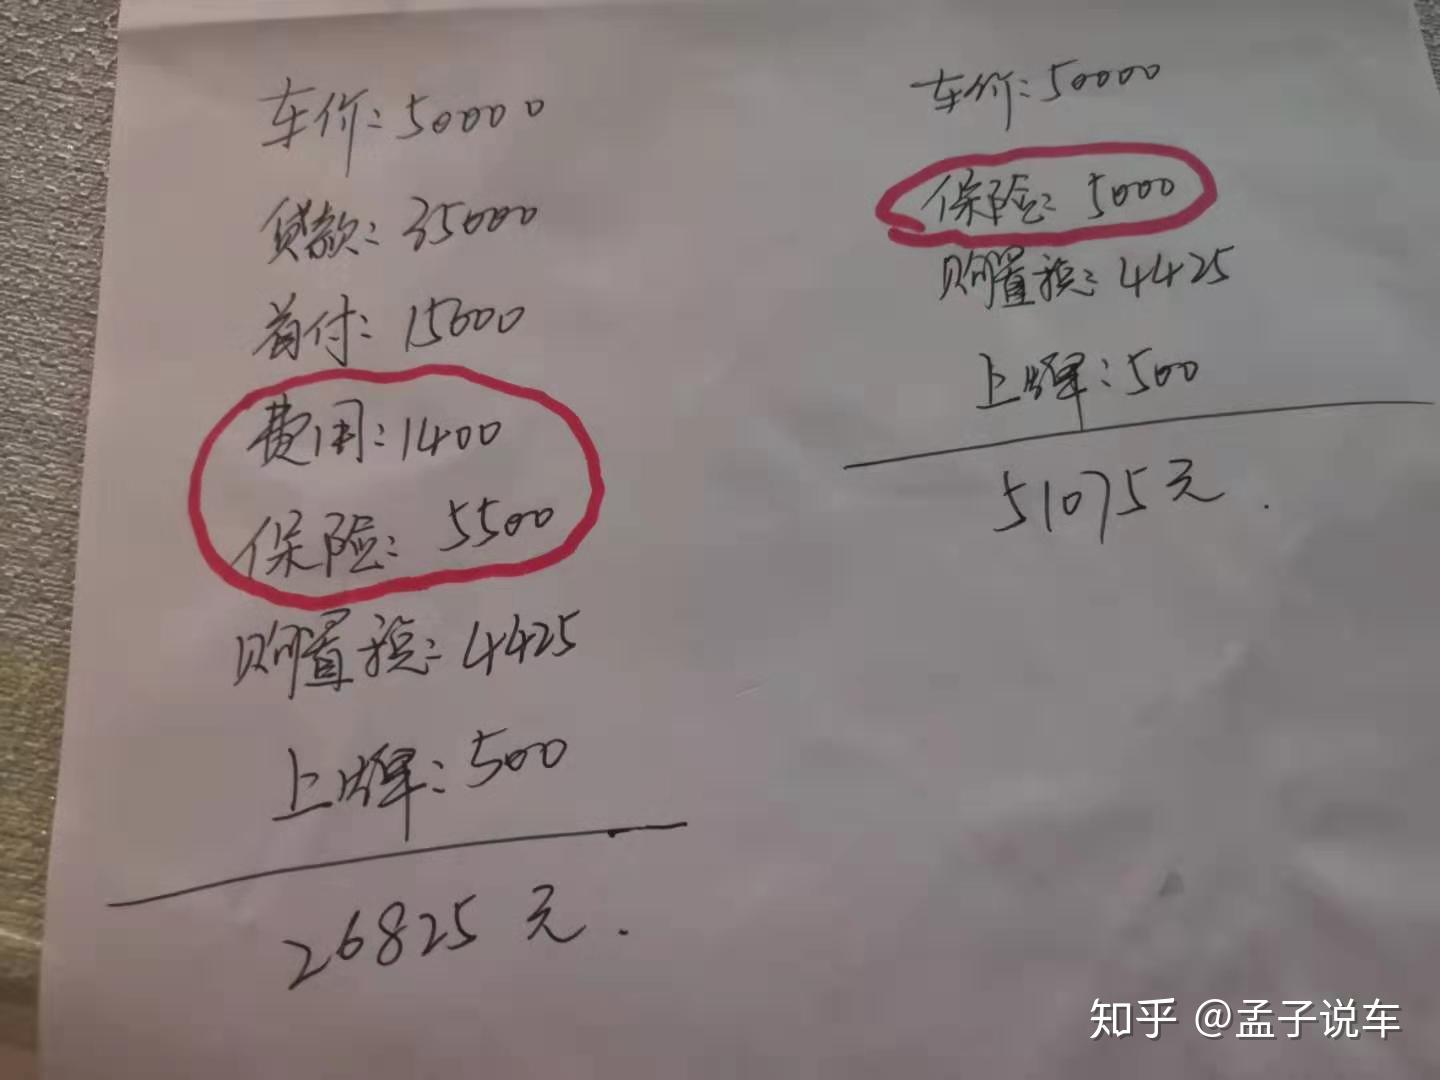 车价:50000
贷款:35000
首付:15000
费用:1400
保险:5500
购置税:4425
上牌:500
26825元.
车价:50000
保险:5000
购置税:4425
上牌:500
51075元.
知乎 @孟子说车